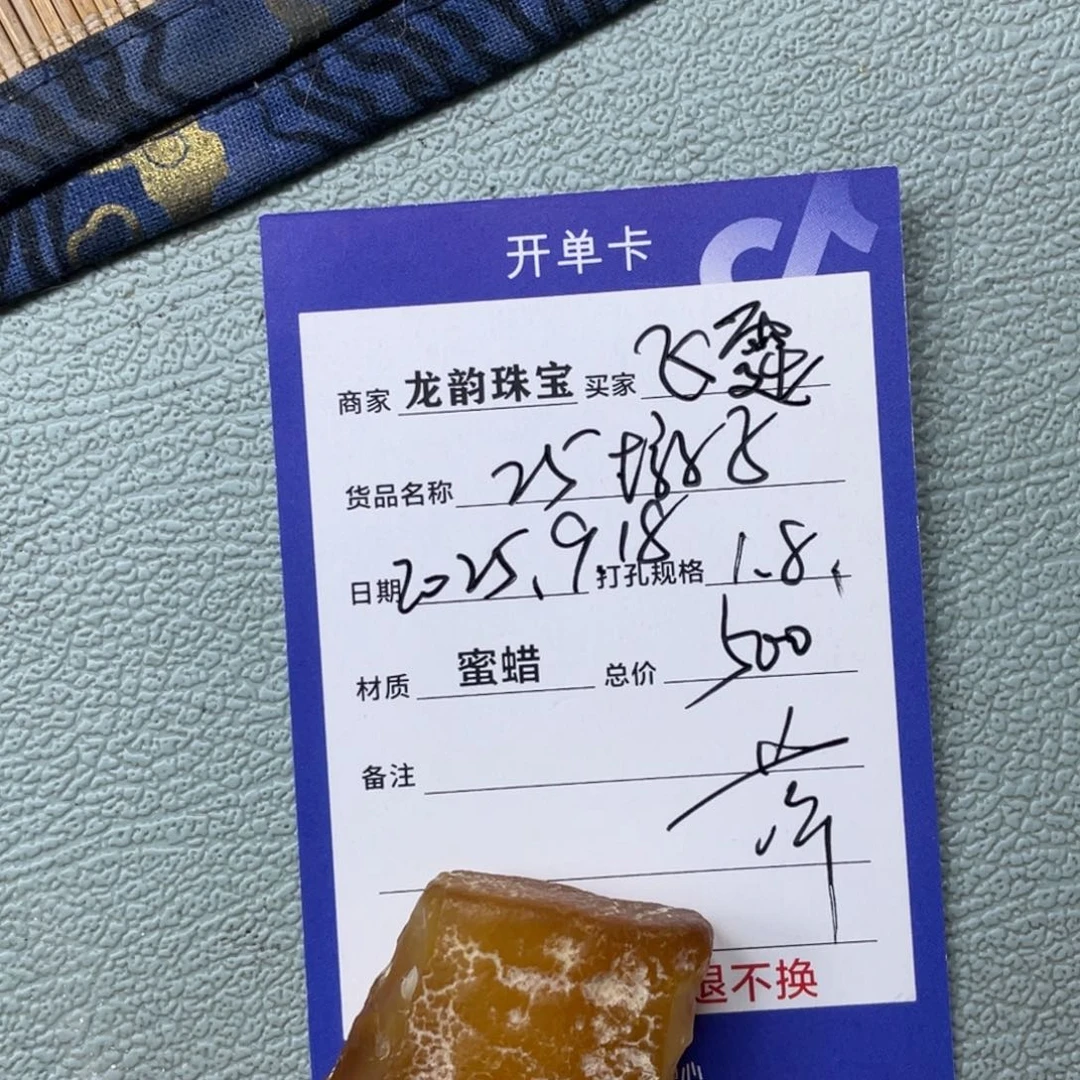 开单卡
商家 龙韵珠宝 买家 飞
货品名称 25
日期 2025.9.18 打孔规格 1.8
材质 蜜蜡 总价 500
备注
退不换